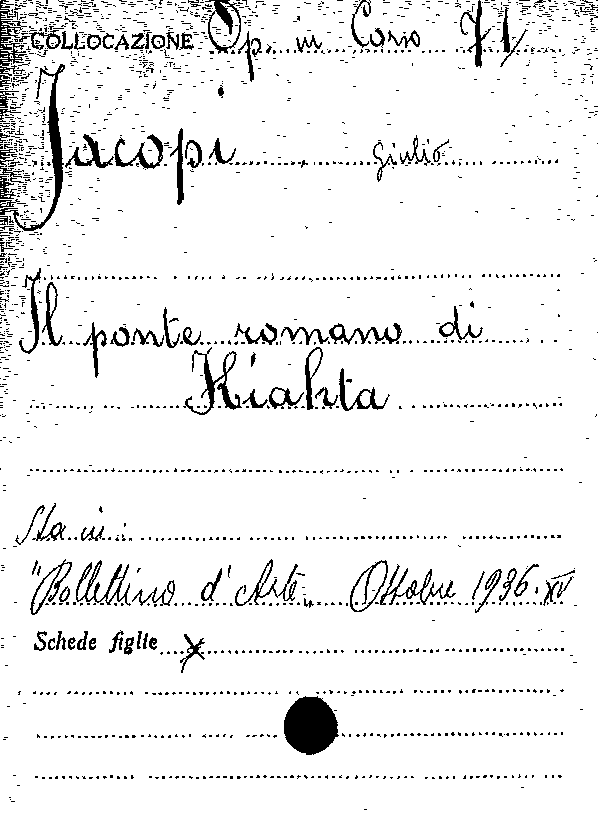 COLLOCAZIONE Op. in Corso 71/
Jacopi Giulio
Il ponte romano di
Kiahta
Sta in:
"Bollettino d'Arte" Ottobre 1936. XV
Schede figlie x